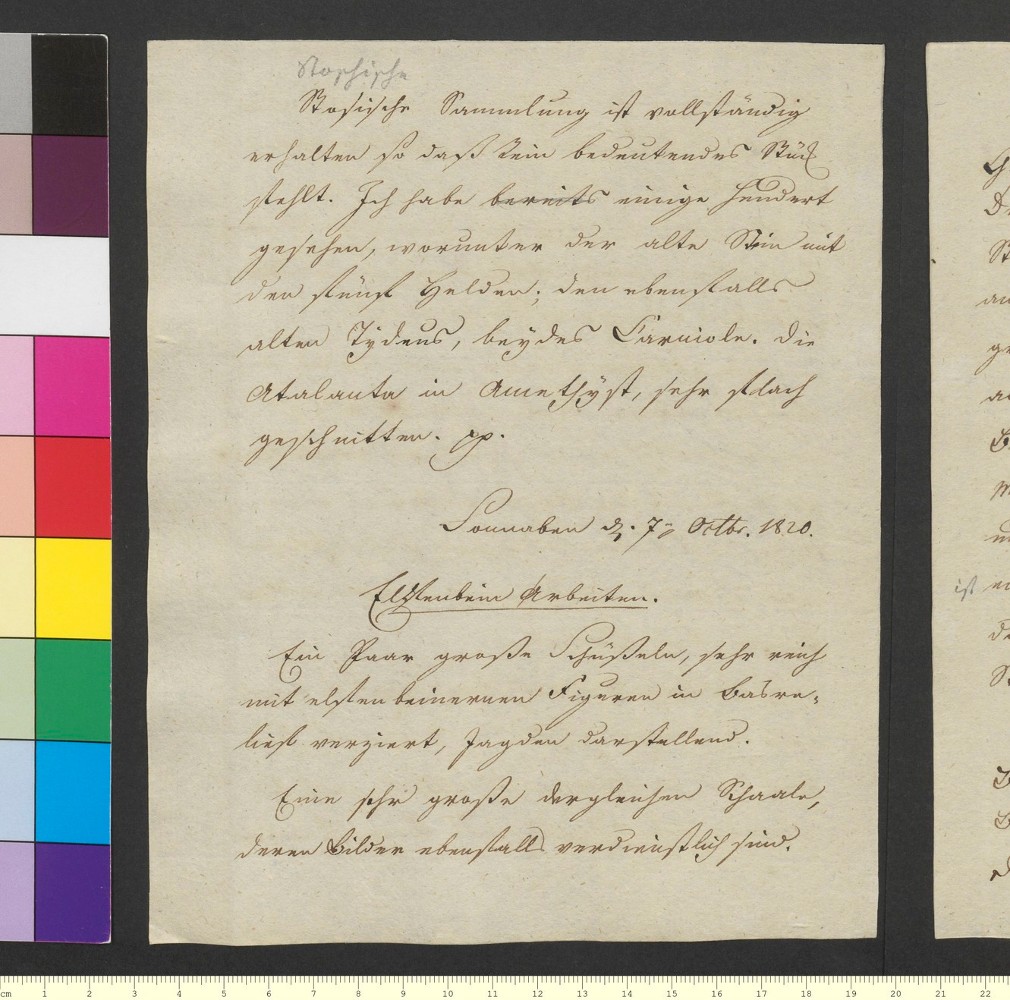 Stoschische
Stosische Sammlung ist vollständig
erhalten so daß kein bedeutendes Stück
fehlt. Ich habe bereits einige Hundert
gesehen, worunter der alte Stein mit
den fünf Helden; den ebenfalls
alten Tydeus, beydes Carniole. Die
Atalanta in Amethyst, sehr flach
geschnitten. pp.
Sonnaben d. 7n Octbr. 1820.
Elfenbein Arbeiten.
Ein Paar große Schüßeln, sehr reich
mit elfenbeinernen Figuren in Basre-
lief verziert, Jagden darstellend.
Eine sehr große dergleichen Schaale,
deren Bilder ebenfalls verdienstlich sind.
ist
cm 1 2 3 4 5 6 7 8 9 10 11 12 13 14 15 16 17 18 19 20 21 22